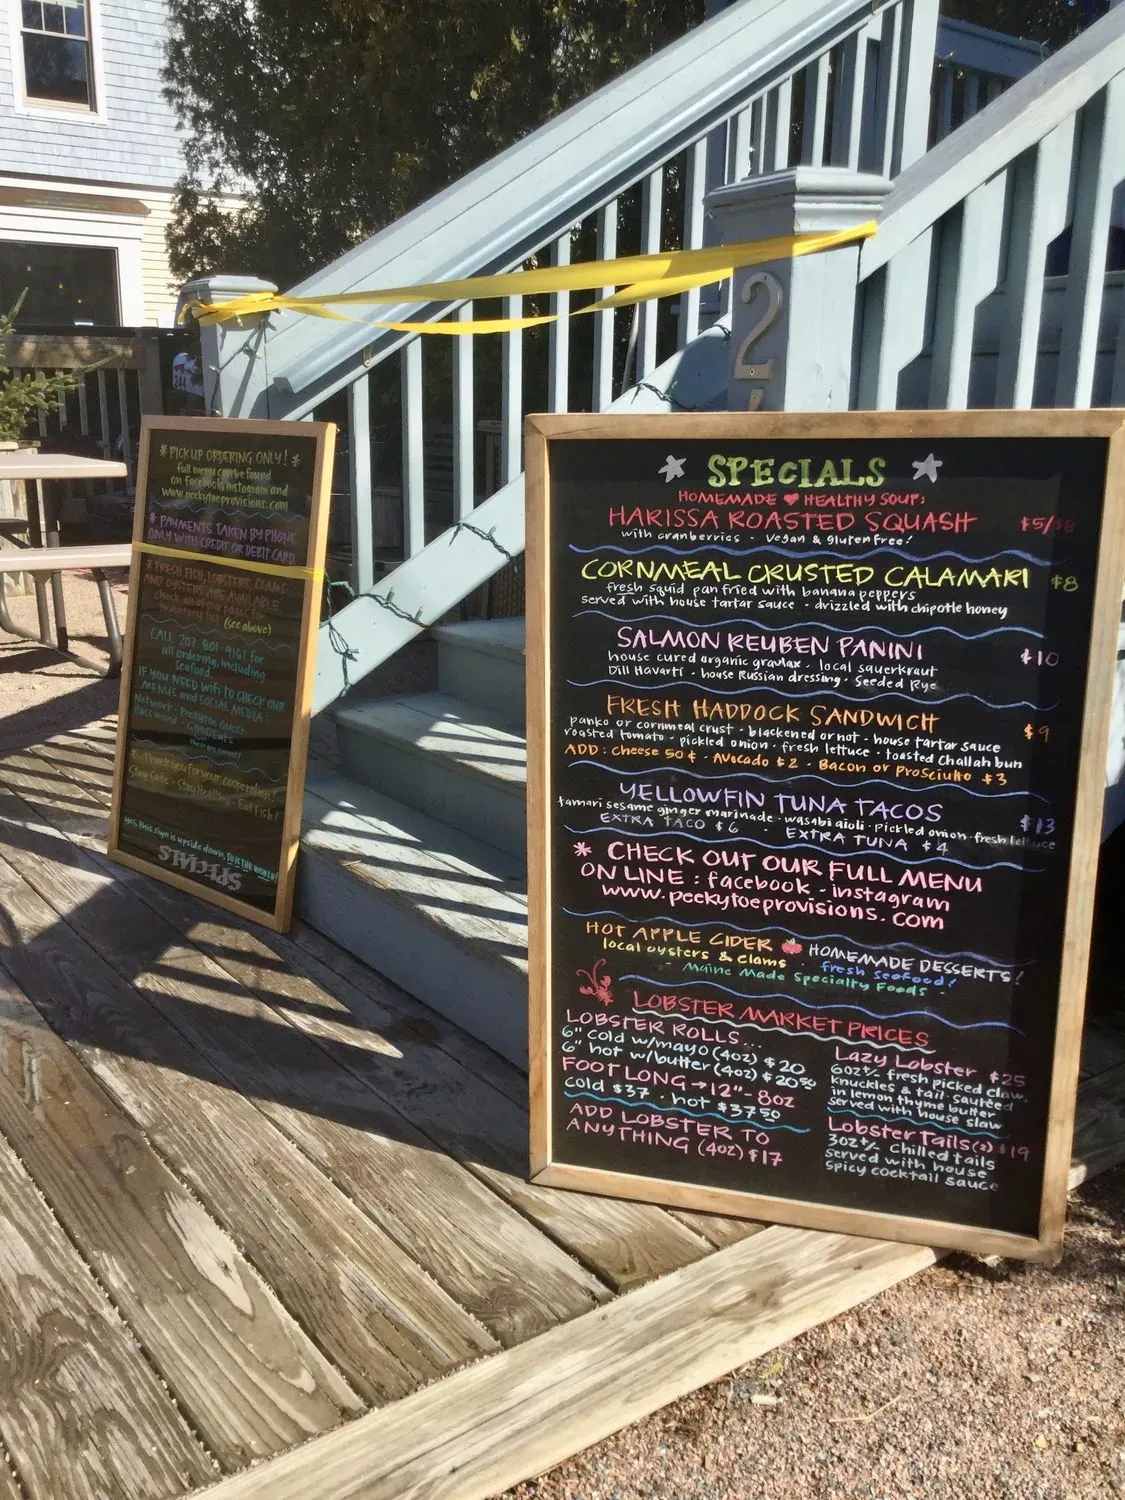 * PICKUP ORDERING ONLY! *
full menu can be found
on facebook, instagram and
www.peekytoeprovisions.com
* PAYMENTS TAKEN BY PHONE
ONLY WITH CREDIT OR DEBIT CARD
* FRESH FISH, LOBSTERS, CLAMS
AND OYSTERS ARE AVAILABLE
check
inventory list (see above)
CALL 207-801-9161 for
all ordering, including
seafood.
IF YOU NEED Wifi TO CHECK OUR
MENUS and SOCIAL MEDIA
Network - Peekytoe Guest
Password -
Thank you for your cooperation!
Stay Safe - Stay Healthy - Eat Fish!
yes, this sign is upside down, SO IS THE WORLD!
SPECIALS
244
2
SPECIALS
HOMEMADE ♥ HEALTHY SOUP:
HARISSA ROASTED SQUASH $5/$8
with cranberries - vegan & gluten free!
CORNMEAL CRUSTED CALAMARI $8
fresh squid pan fried with banana peppers
served with house tartar sauce - drizzled with chipotle honey
SALMON REUBEN PANINI $10
house cured organic gravlax - local sauerkraut
Dill Havarti - house Russian dressing - Seeded Rye
FRESH HADDOCK SANDWICH $9
panko or cornmeal crust - blackened or not - house tartar sauce
roasted tomato - pickled onion - fresh lettuce - toasted Challah bun
ADD: Cheese 50¢ - Avocado $2 - Bacon or Prosciutto $3
YELLOWFIN TUNA TACOS $13
tamari sesame ginger marinade - wasabi aioli - pickled onion - fresh lettuce
EXTRA TACO $6 - EXTRA TUNA $4
* CHECK OUT OUR FULL MENU
ON LINE: facebook - instagram
www.peekytoeprovisions.com
HOT APPLE CIDER HOMEMADE DESSERTS!
local oysters & clams - fresh seafood!
- Maine Made Specialty Foods -
LOBSTER MARKET PRICES
LOBSTER ROLLS...
6" cold w/mayo (4oz) $20
6" hot w/butter (4oz) $20.50
FOOT LONG → 12" - 8oz
cold $37 - hot $37.50
ADD LOBSTER TO
ANYTHING (4oz) $17
Lazy Lobster $25
6oz +/- fresh picked claw,
knuckles & tail - sautéed
in lemon thyme butter
served with house slaw
Lobster Tails (2) $19
3oz +/- Chilled tails
served with house
spicy cocktail sauce